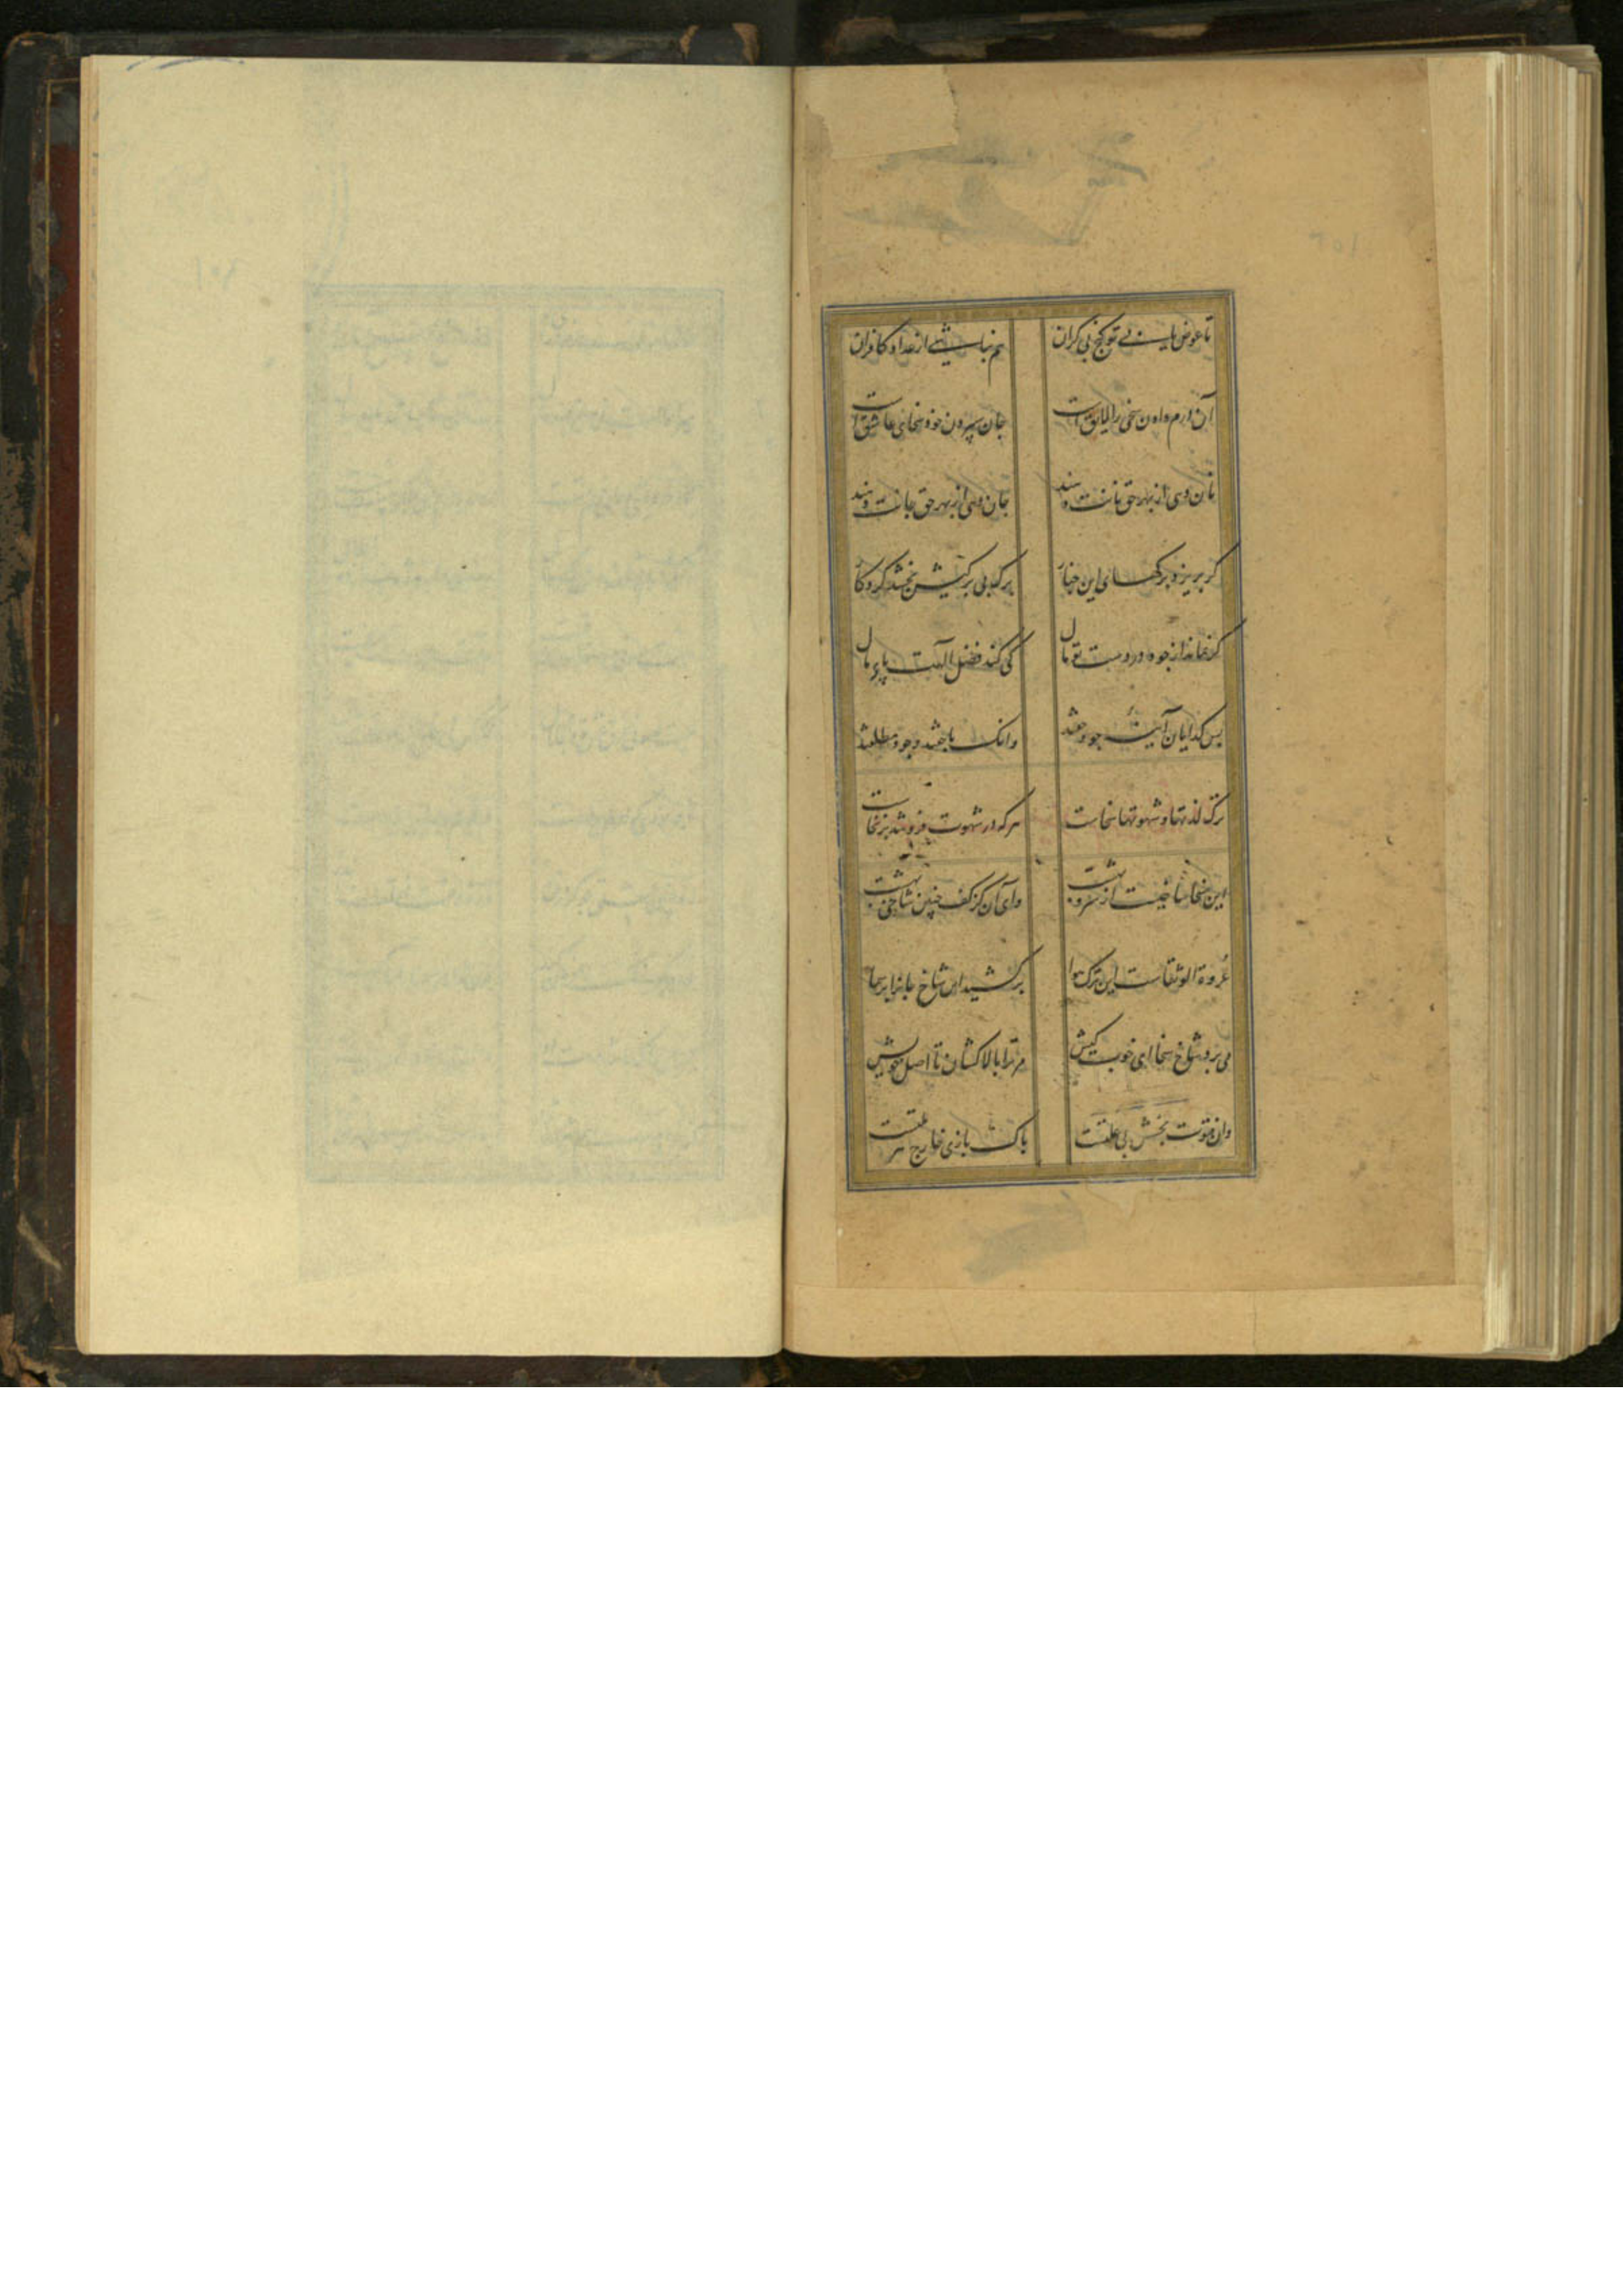 تا عوض یابی تو گنج بی کران هم نباشی از عداد کافران
آن درم دادن سخی را لایق است جان سپردن خود سخای عاشق است
نان دهی از بهر حق نانت دهند جان دهی از بهر حق جانت دهند
گر بریزد برگهای این چنار برگ بی برگیش بخشد کردگار
گر نماند از جود در دست تو مال کی کند فضل الهت پای مال
پس گدایان آینه جود حقند وانک با حقند جود مطلقند
ترک لذتها و شهوتها سخاست هر که در شهوت فرو شد برنخاست
این سخا شاخیست از سرو بهشت وای آن کز کف چنین شاخی بهشت
عروة الوثقاست این ترک هوا برکشید این شاخ جانرا بر سما
می برد شاخ سخا ای خوب کیش مر ترا بالا کشان تا اصل خویش
وان فتوت بخش بی علتست پاک بازی خارج هر ملتست